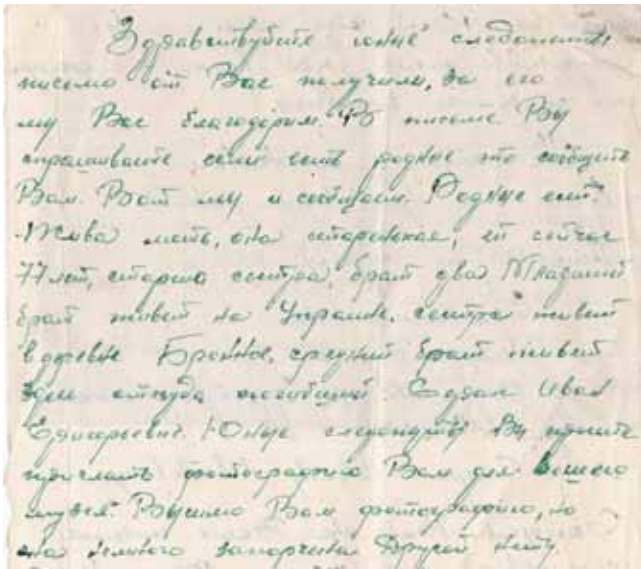 Здравствуйте юные следопыты
письмо от Вас получили, за его
мы Вас благодарим. В письме Вы
спрашиваете если есть родные то сообщить
Вам. Вот мы и сообщаем. Родные есть.
Жива мать, она старенькая, ей сейчас
77 лет, старша сестра, брат два Младший
брат живет на Украине, сестра живет
в деревне Бронное, средний брат живет
откуда погибший Иван
Юные следопыты Вы
прислать фотографию Вам для вашего
музея. Вышлю Вам фотографию, но
она немного Другой нету